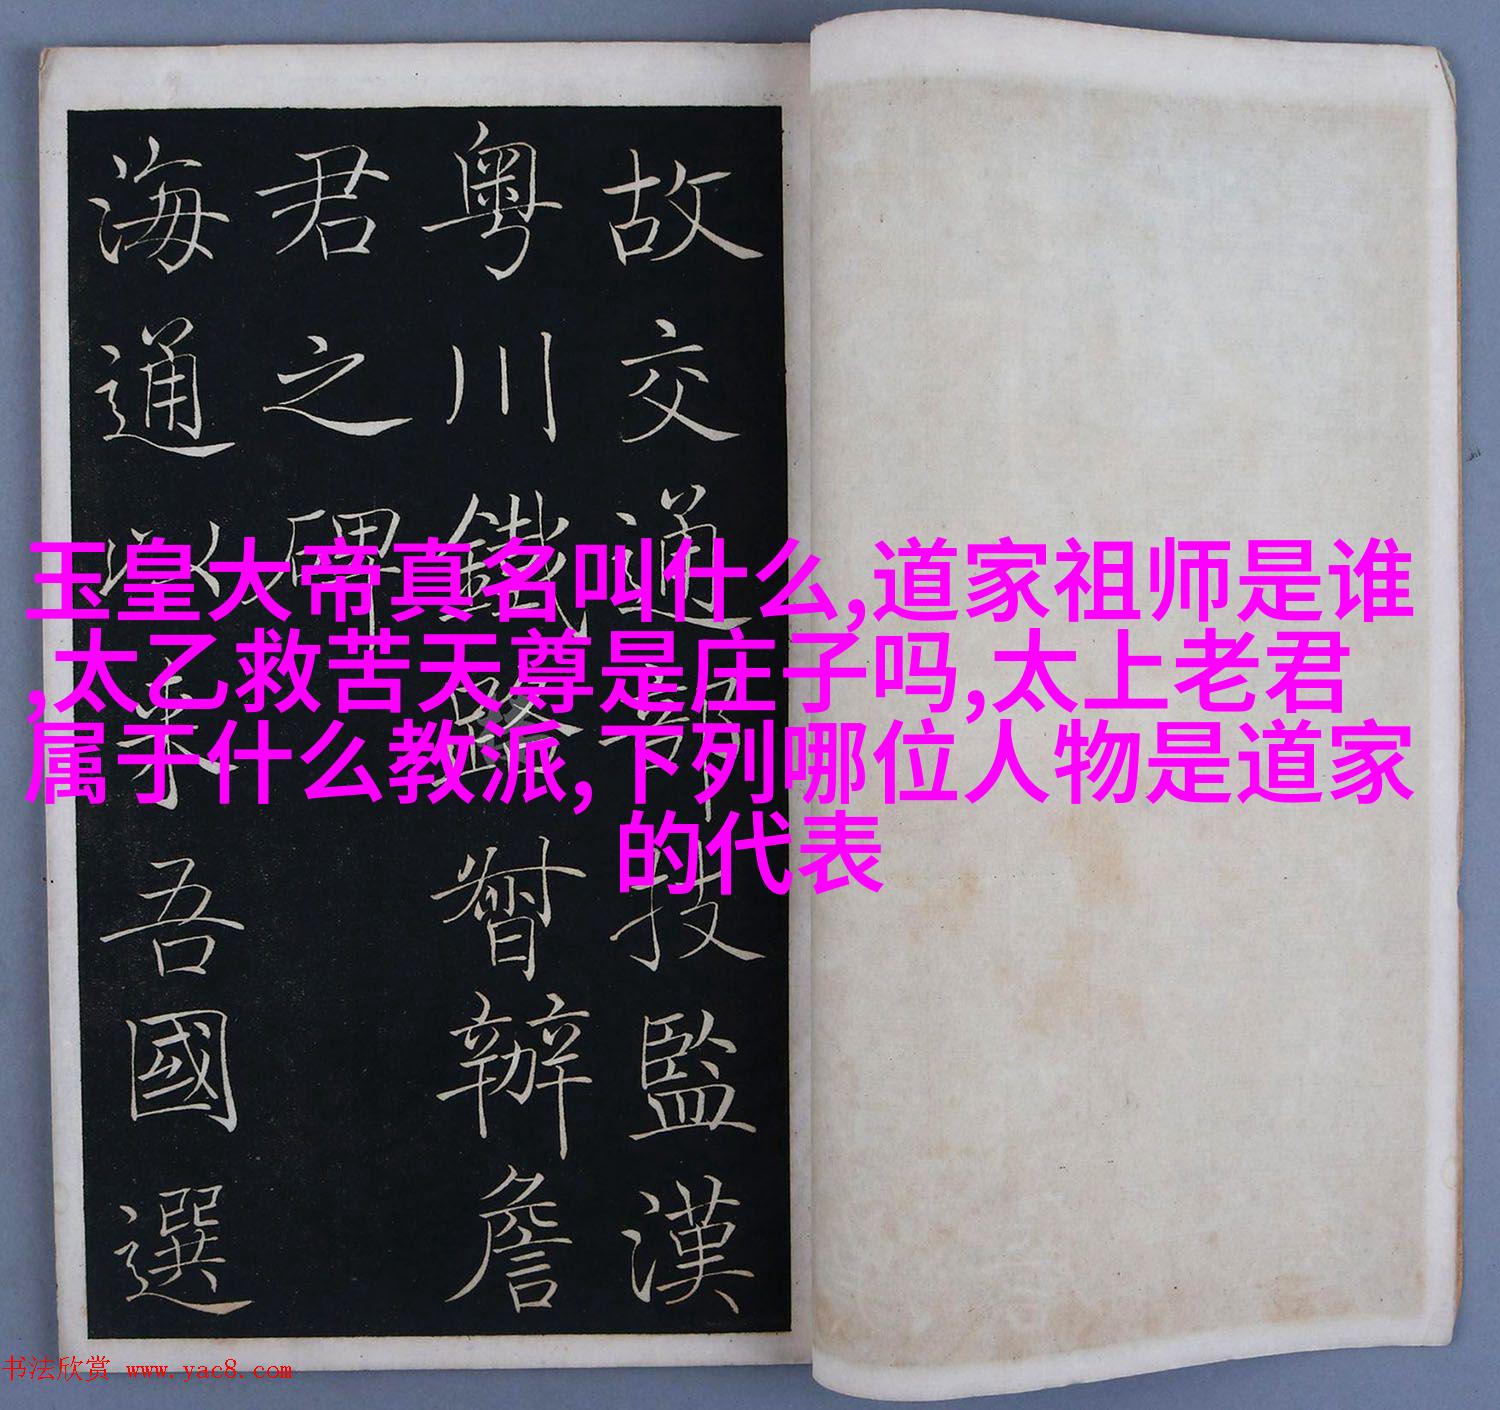 故交通部技監漢
粤川鐵路督辦詹
君之碑
海通以来吾國選
玉皇大帝真名叫什么,道家祖师是谁
,太乙救苦天尊是庄子吗,太上老君
属于什么教派,下列哪位人物是道家
的代表
书法欣赏 www.yac8.com